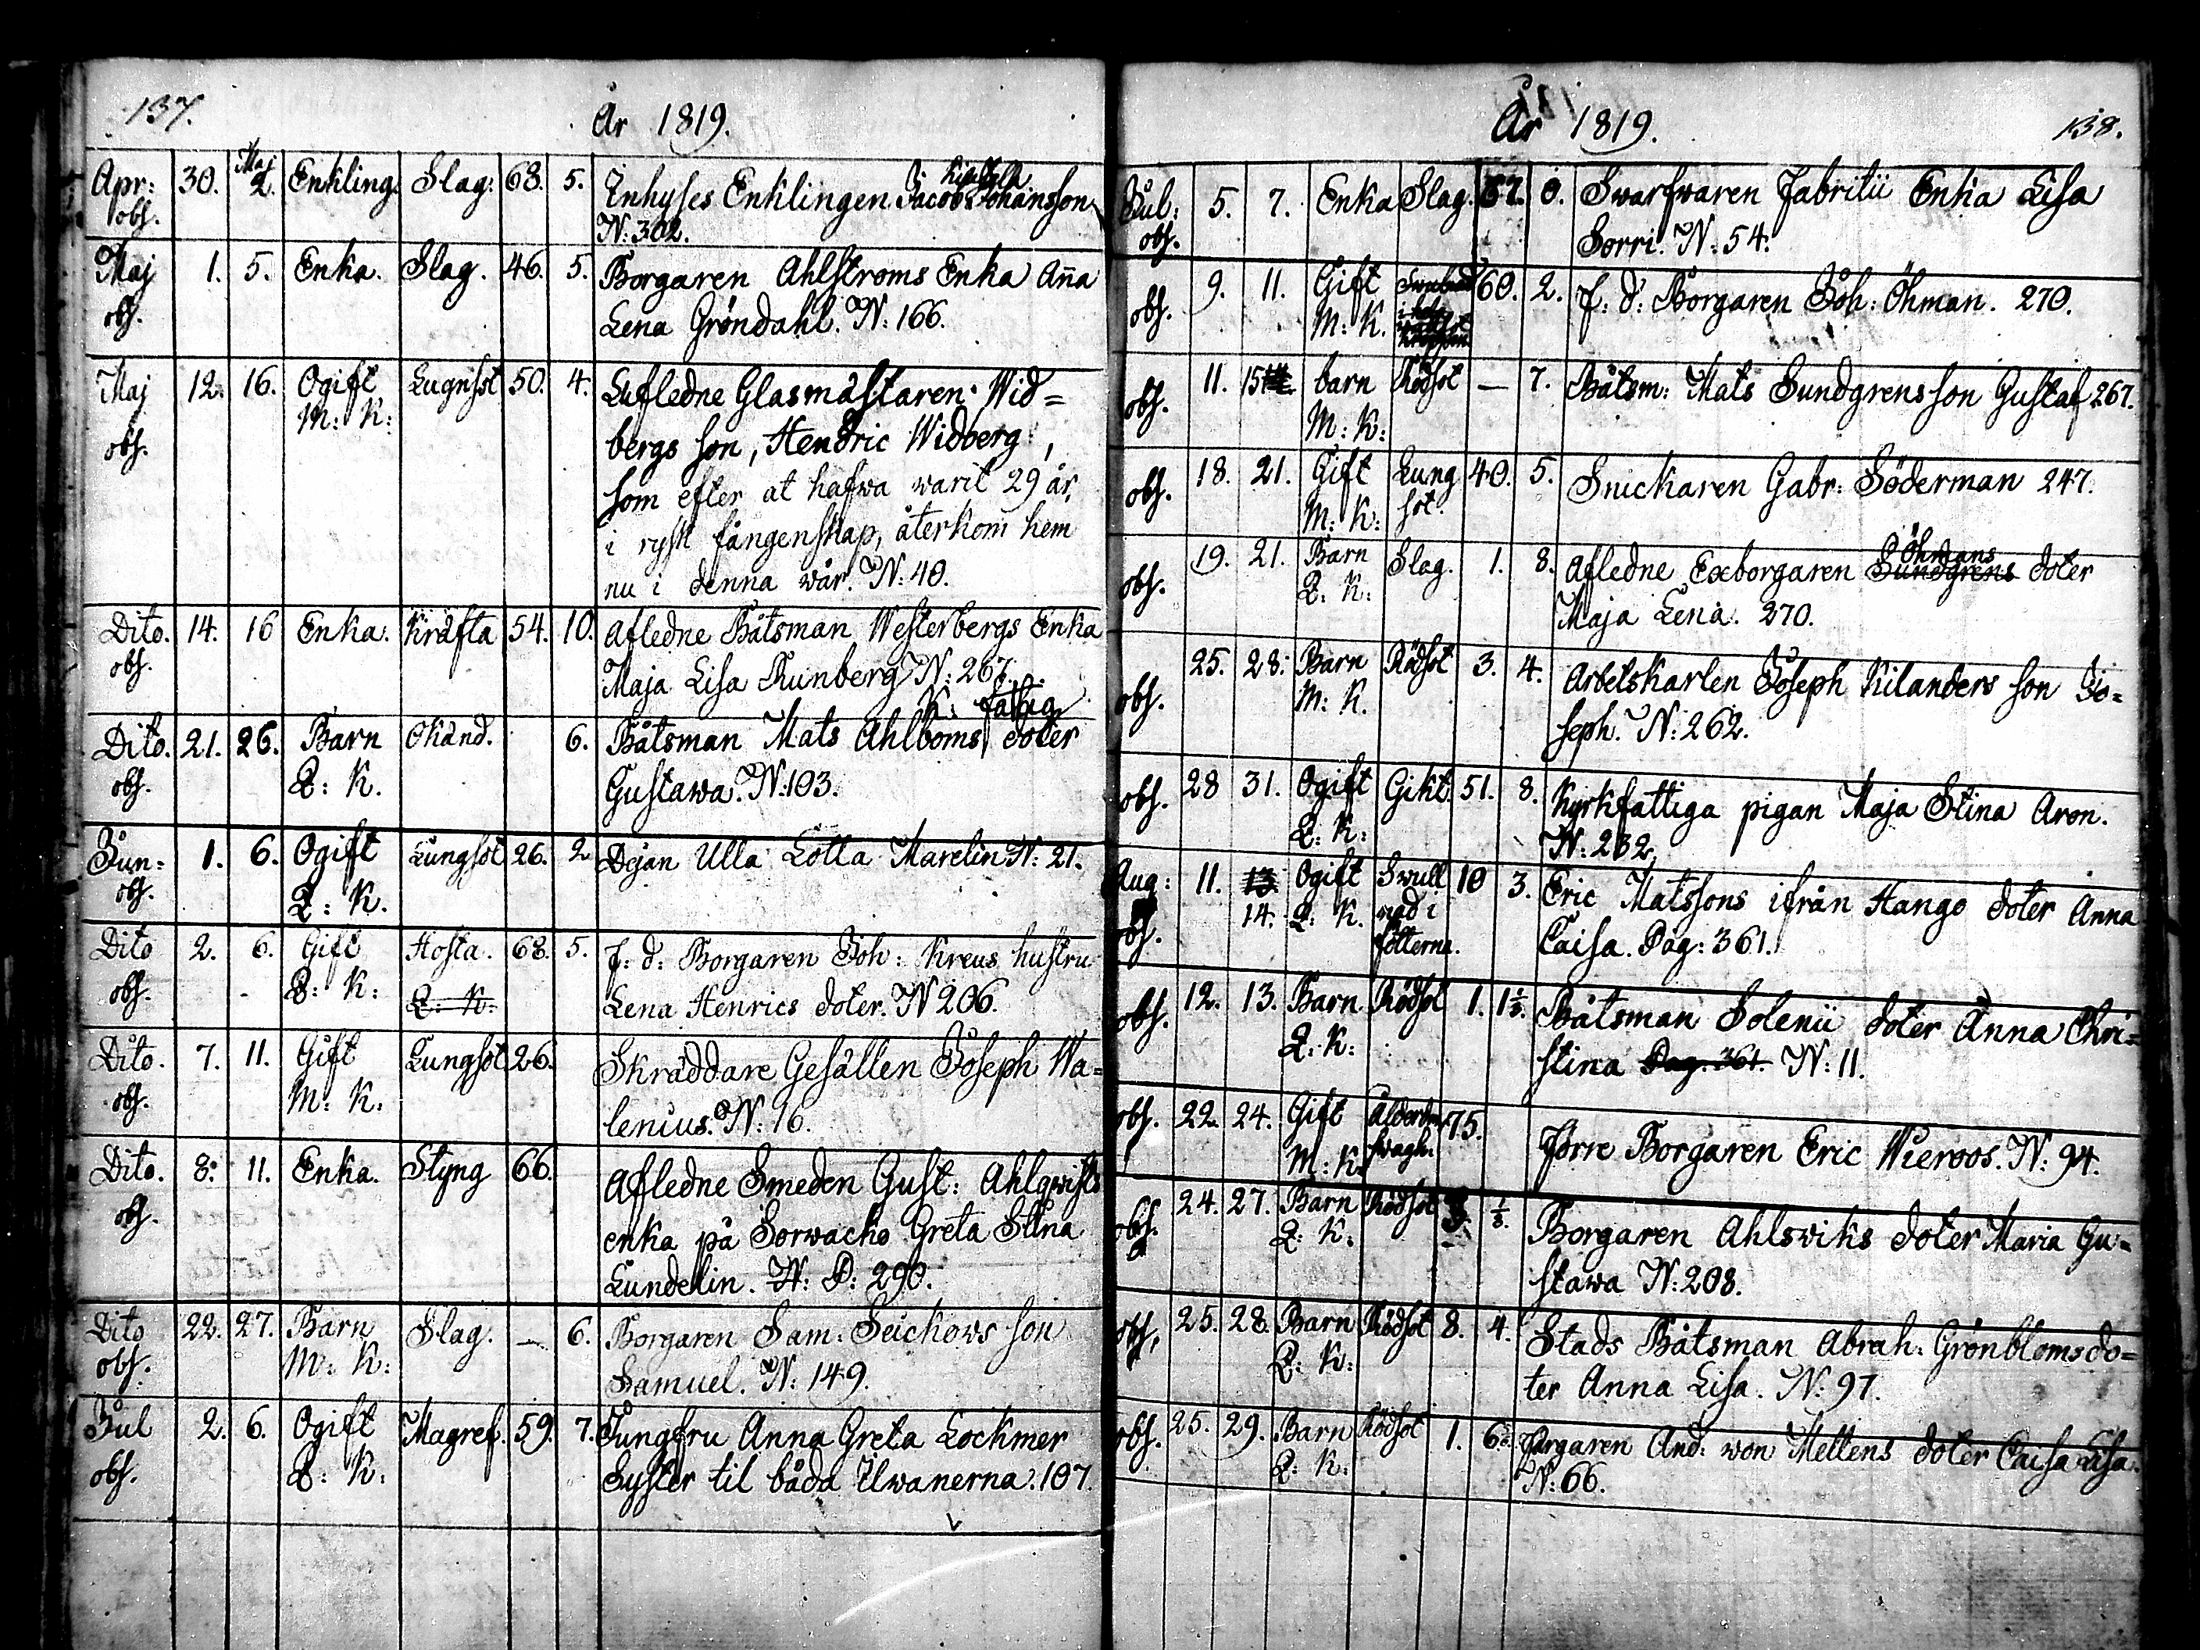 137.
År 1819.
Apr: 30. Maj 2. Enkling. Slag. 68. 5. Inhyses Enklingen Jacob Johansson
obs. N: 302.
Maj 1. 5. Enka. Slag. 46. 5. Borgaren Ahlstroms Enka Aña
obs. Lena Gröndahl. N: 166.
Maj 12. 16. Ogift Lugnsot 50. 4. Aufledne Glasmästaren Wid=
M: K: bergs son, Hendric Widberg,
obs. som efter at hafwa warit 29 år,
i rysk fångenskap, återkom hem
nu i denna wår. N: 40.
Dito. 14. 16 Enka. Kräfta 54. 10. Afledne Båtsman Westerbergs Enka
obs. Maja Lisa Runberg N: 267.
K: fattig
Dito. 21. 26. Barn Okänd. 6. Båtsman Mats Ahlboms doter
obs. Q: K. Gustawa. N: 103.
Jun: 1. 6. Ogift Lungsot 26. 2. Dejan Ulla Lotta Marelin N: 21.
obs. Q: K.
Dito 2. 6. Gift Hosta. 68. 5. f: d: Borgaren Joh: Kreus hustru
obs. Q: K: Q: K: Lena Henrics doter. N 206.
Dito. 7. 11. Gift Lungsot 26. Skräddare Gesällen Joseph Wa=
obs. M: K. lenius. N: 16.
Dito. 8. 11. Enka. Styng 66. Afledne Smeden Gust: Ahlqwists
obs. enka på Sorwacko Greta Stina
Lundelin. N: P: 290.
Dito 22. 27. Barn Slag. — 6. Borgaren Sam: Seickows son
obs. M: K: Samuel. N: 149.
Jul 2. 6. Ogift Magref. 59. 7. Jungfru Anna Greta Lockmer
obs. Q: K: Syster til båda Elwanerna. 107.
År 1819.
138.
Jul: 5. 7. Enka Slag. 67. 0. Swarfwaren Fabritii Enka Lisa
obs. Sorri. N: 54.
9. 11. Gift 60. 2. f: d: Borgaren Joh: Öhman. 270.
obs. M: K.
11. 15 barn Rödsot — 7. Båtsm: Mats Sundgrens son Gustaf 267.
obs. M: K:
18. 21. Gift Lung 40. 5. Snickaren Gabr: Söderman 247.
obs. M: K: sot.
Öhmans
19. 21. Barn Slag. 1. 8. Afledne Exborgaren Sundgrens doter
obs. Q: K: Maja Lena. 270.
25. 28. Barn Rödsot 3. 4. Arbetskarlen Joseph Kilanders son Jo=
obs. M: K. seph. N: 262.
obs. 28 31. Ogift Gikt. 51. 8. Kyrkfattiga pigan Maja Stina Aron.
Q: K: N: 232.
Aug: 11. 13. Ogift Swull 10 3. Eric Matssons ifrån Hango doter Anna
obs. 14. Q: K. nad i Caisa. Pag: 361.
fötterna.
obs. 12. 13. Barn Rödsot 1. 1½. Båtsman Solenii doter Anna Chri=
Q: K: stina Pag. 361. N: 11.
obs. 22. 24. Gift Ålderdom 75. Förre Borgaren Eric Wieroos. N: 94.
M: K. swagh.
obs. 24. 27. Barn Rödsot Borgaren Ahlswiks doter Maria Gu=
Q: K. stawa N: 208.
obs. 25. 28. Barn Rödsot 8. 4. Stads Båtsman Abrah: Grönbloms do=
Q: K: ter Anna Lisa. N: 97.
obs. 25. 29. Barn Rödsot 1. 6. Borgaren And: won Mellens doter Caisa Lisa.
Q: K. N: 66.